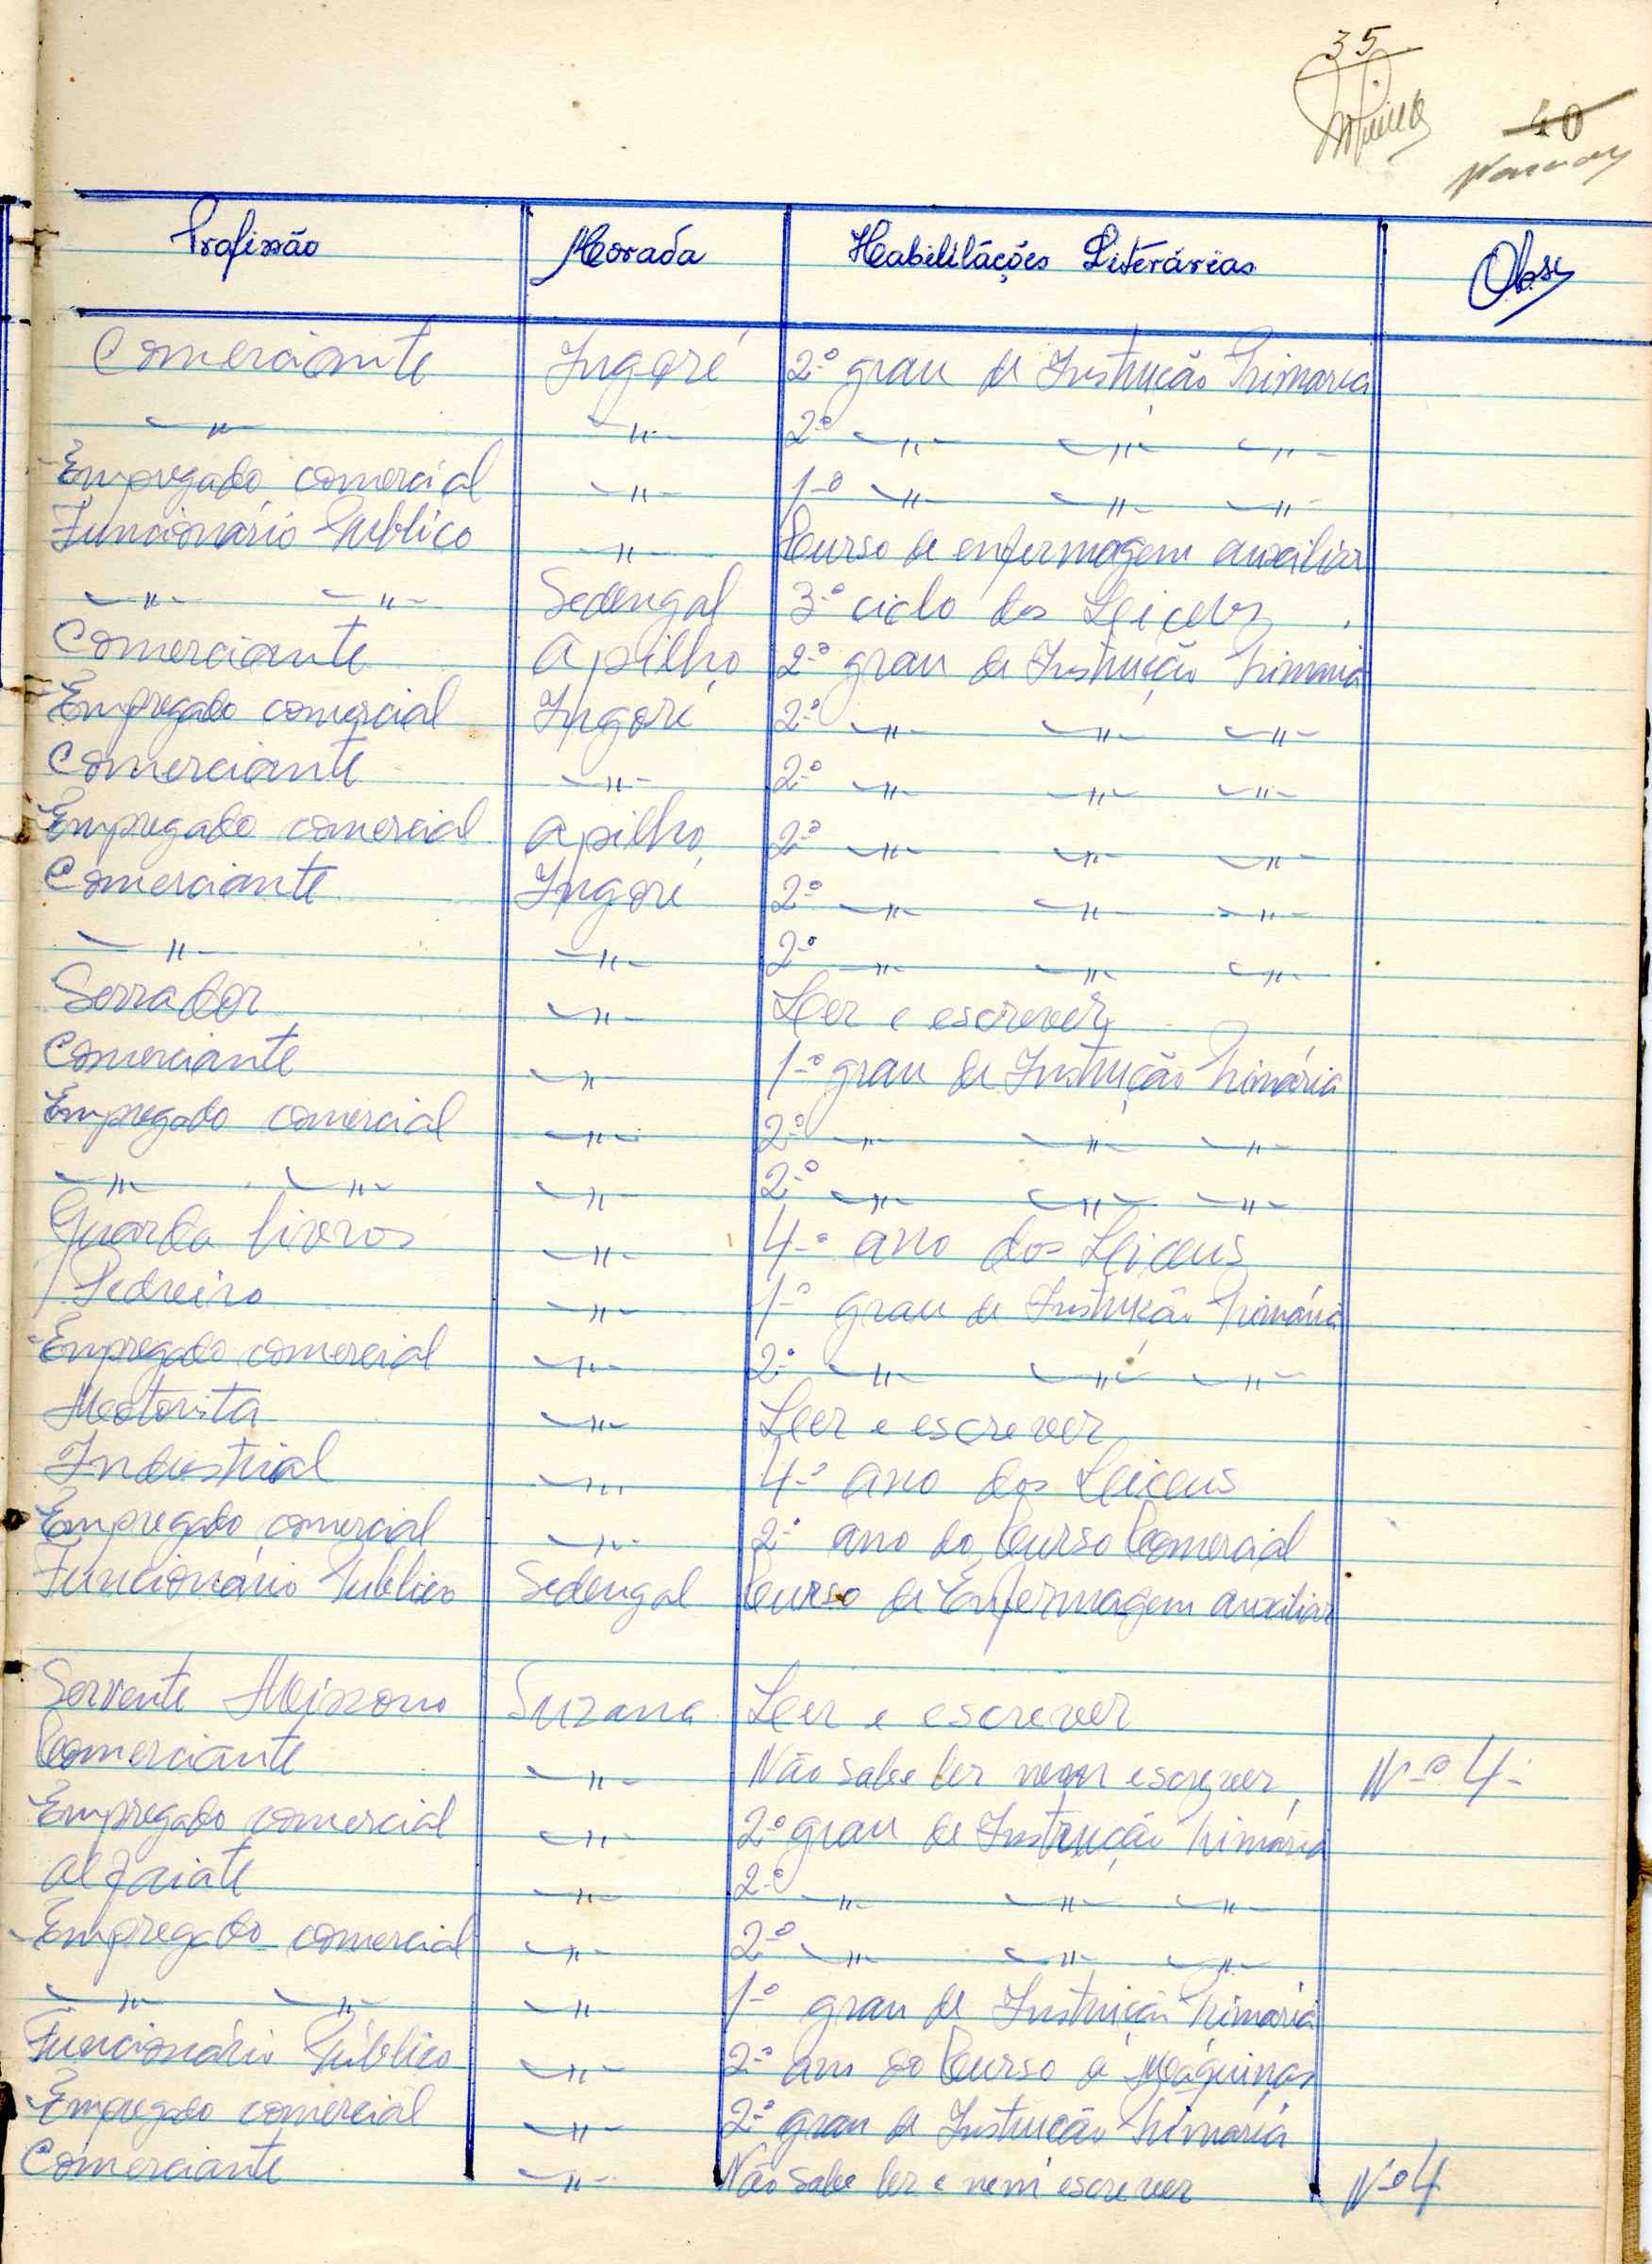 35
40
Profissão Morada Habilitáções Literárias Obs
Comerciante Ingoré 2º grau de Instrução Primaria
—"— —"— 2º —"— —"— —"—
Empregado comercial —"— 1º —"— —"— —"—
Funcionário Publico —"— Curso de enfermagem auxiliar
—"— —"— Sedengal 3º ciclo dos Leiceus
Comerciante Apilho 2º grau de Instrução Primaria
Empregado comercial Ingoré 2º —"— —"— —"—
Comerciante —"— 2º —"— —"— —"—
Empregado comercial Apilho 2º —"— —"— —"—
Comerciante Ingoré 2º —"— —"— —"—
—"— —"— 2º —"— —"— —"—
Serrador —"— Ler e escrever
Comerciante —"— 1º grau de Instrução Primária
Empregado comercial —"— 2º —"— —"— —"—
—"— —"— —"— 2º —"— —"— —"—
Guarda livros —"— 4º ano dos Leiceus
Pedreiro —"— 1º grau de Instrução Primária
Empregado comercial —"— 2º —"— —"— —"—
Motorista —"— Ler e escrever
Industrial —"— 4º ano dos Leiceus
Empregado comercial —"— 2º ano do Curso Comercial
Funcionário Publico Sedengal Curso de Enfermagem auxiliar
Servente Suzana Ler e escrever
Comerciante —"— Não sabe ler nem escrever Nº 4
Empregado comercial —"— 2º grau de Instrução Primária
Alfaiate —"— 2º —"— —"— —"—
Empregado comercial —"— 2º —"— —"— —"—
—"— —"— —"— 1º grau de Instrução Primária
Funcionário Público —"— 2º ano do Curso de Máquinas
Empregado comercial —"— 2º grau de Instrução Primária
Comerciante —"— Não sabe ler e nem escrever Nº 4